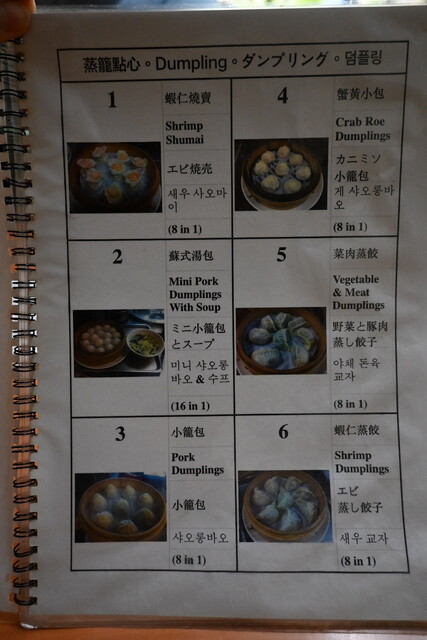 蒸籠點心。Dumpling。ダンプリング。덤플링
1
蝦仁燒賣
Shrimp
Shumai
エビ焼売
새우 샤오마
이
(8 in 1)
4
蟹黃小包
Crab Roe
Dumplings
カニミソ
小籠包
게 샤오롱바
오
(8 in 1)
2
蘇式湯包
Mini Pork
Dumplings
With Soup
ミニ小籠包
とスープ
미니 샤오롱
바오 & 수프
(16 in 1)
5
菜肉蒸餃
Vegetable
& Meat
Dumplings
野菜と豚肉
蒸し餃子
야채 돈육
교자
(8 in 1)
3
小籠包
Pork
Dumplings
小籠包
샤오롱바오
(8 in 1)
6
蝦仁蒸餃
Shrimp
Dumplings
エビ
蒸し餃子
새우 교자
(8 in 1)